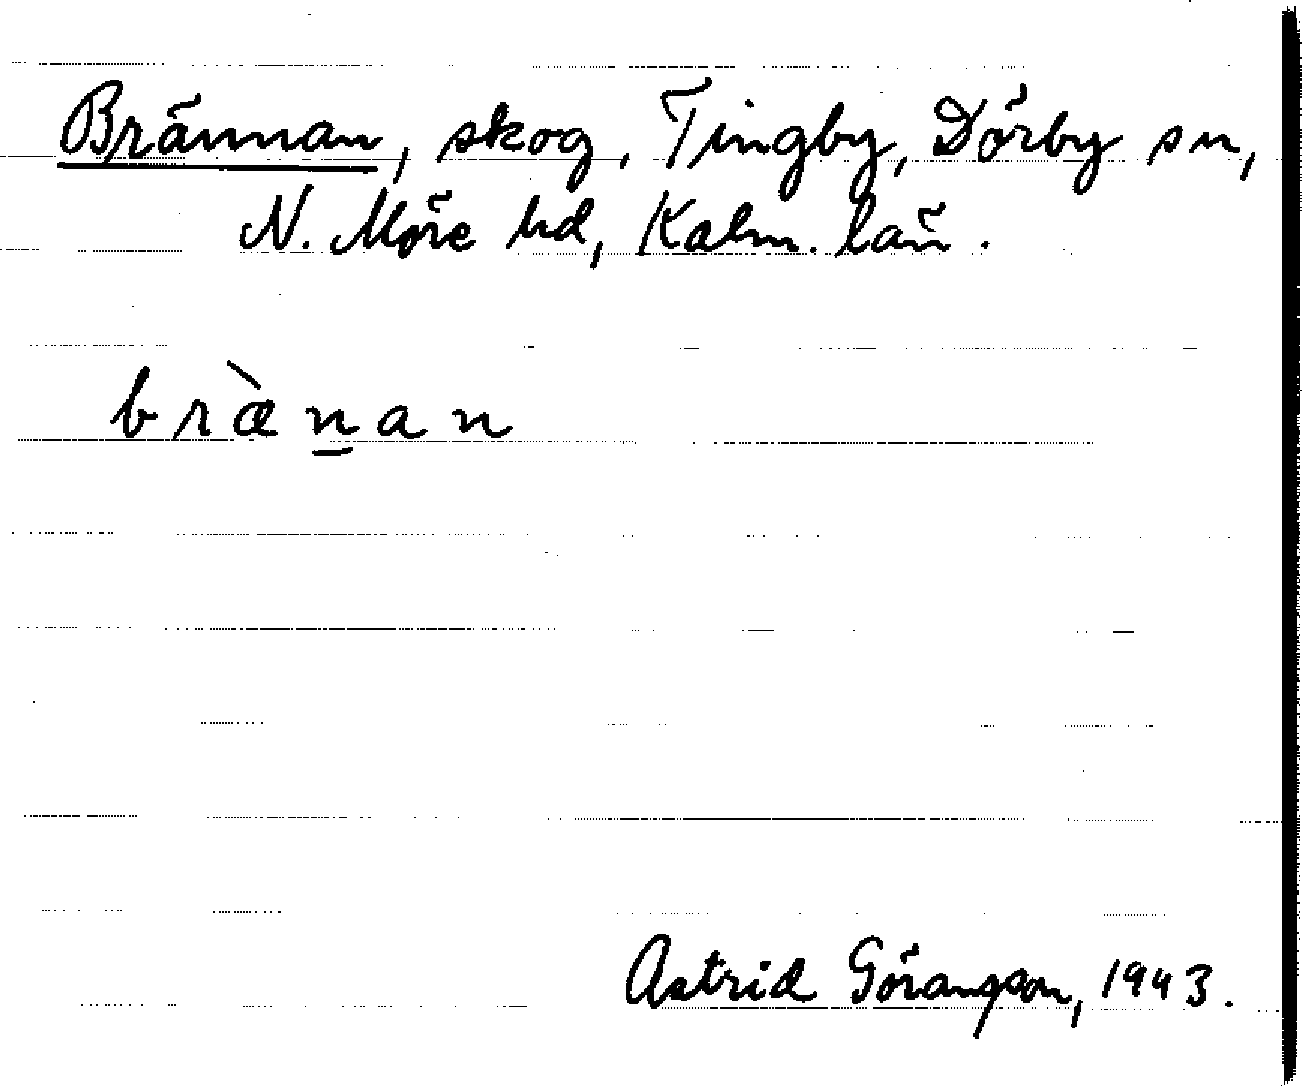 Brännan, skog, Tingby, Dörby sn,
N. Möre hd, Kalm. län.
bræ̀n̲an
Astrid Göransson, 1943.